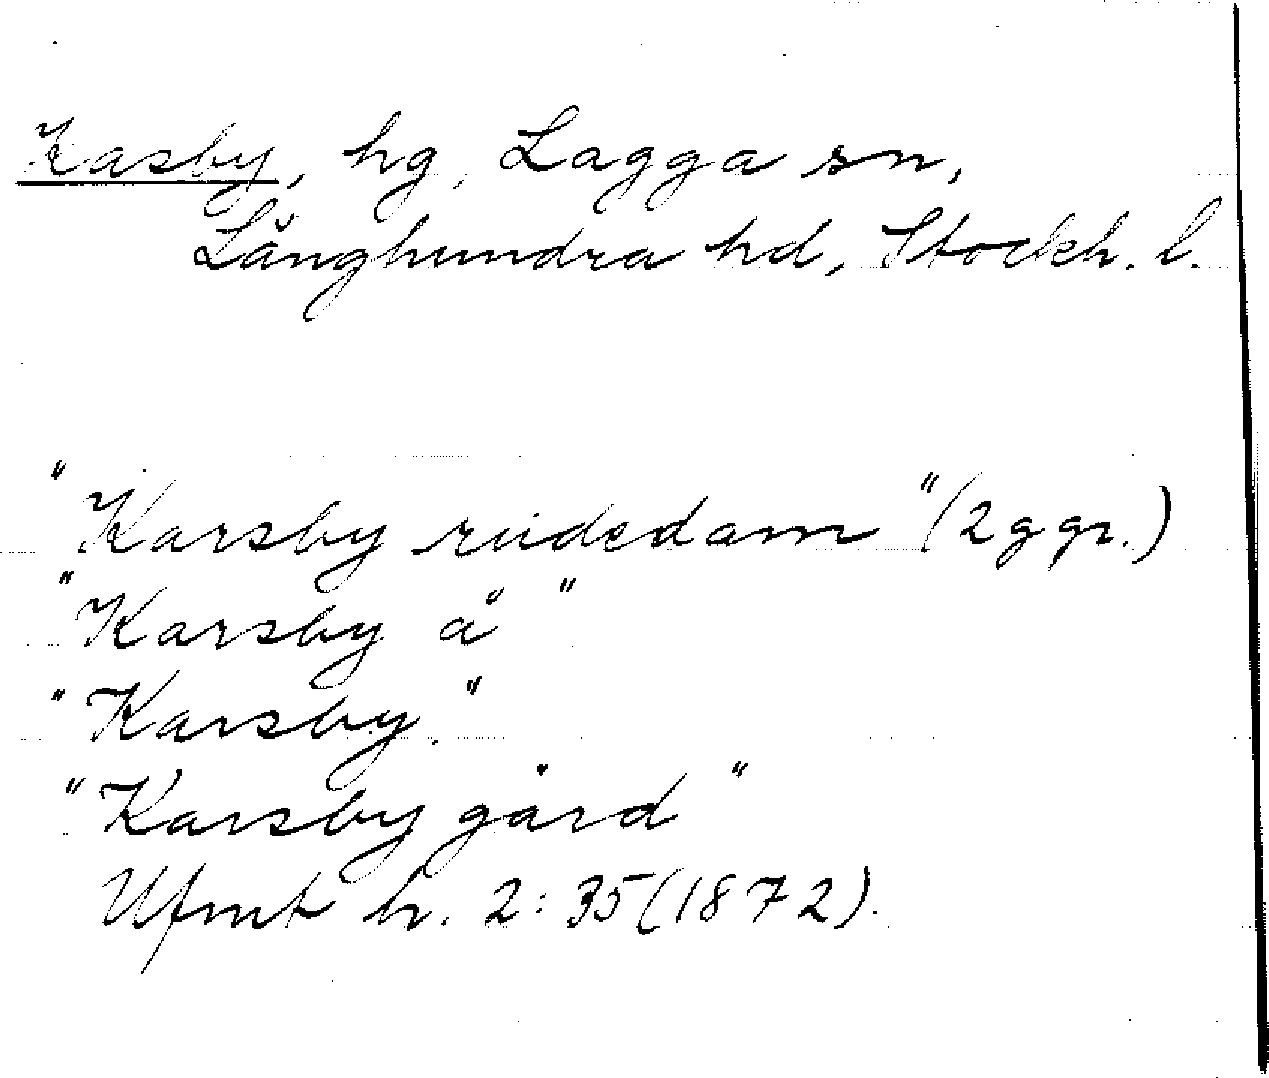 Kasby, hg, Lagga sn,
Långhundra hd, Stockh. l.
"Karsby rudedam" (2 ggr.)
"Karsby å"
"Karsby."
"Karsby gård"
Ufmt h. 2:35 (1872).